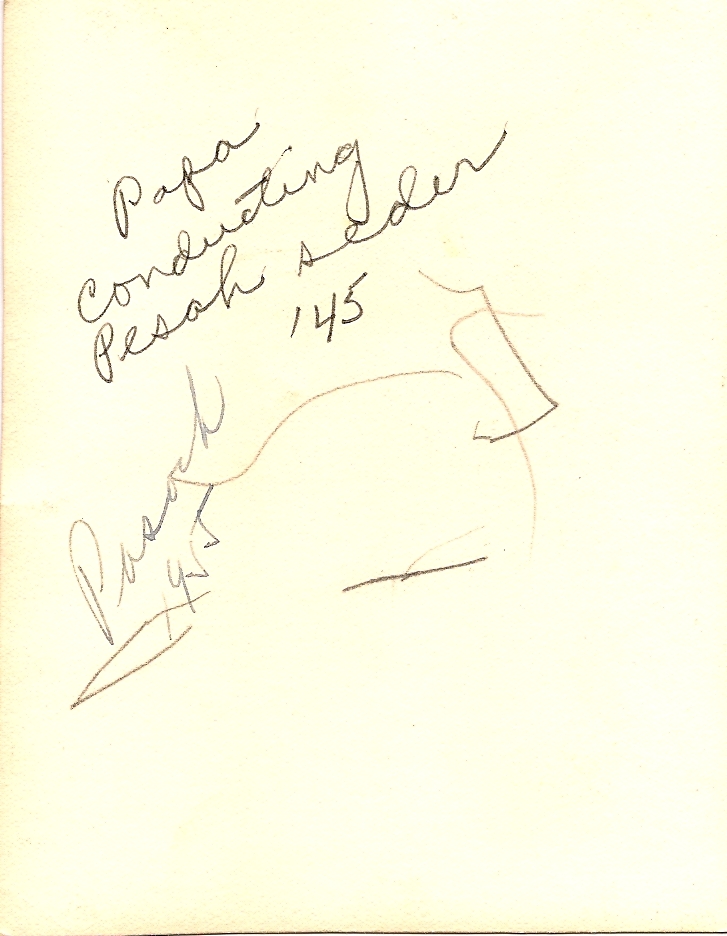 Papa
conducting
Pesah seder
'45
Pasach
'45